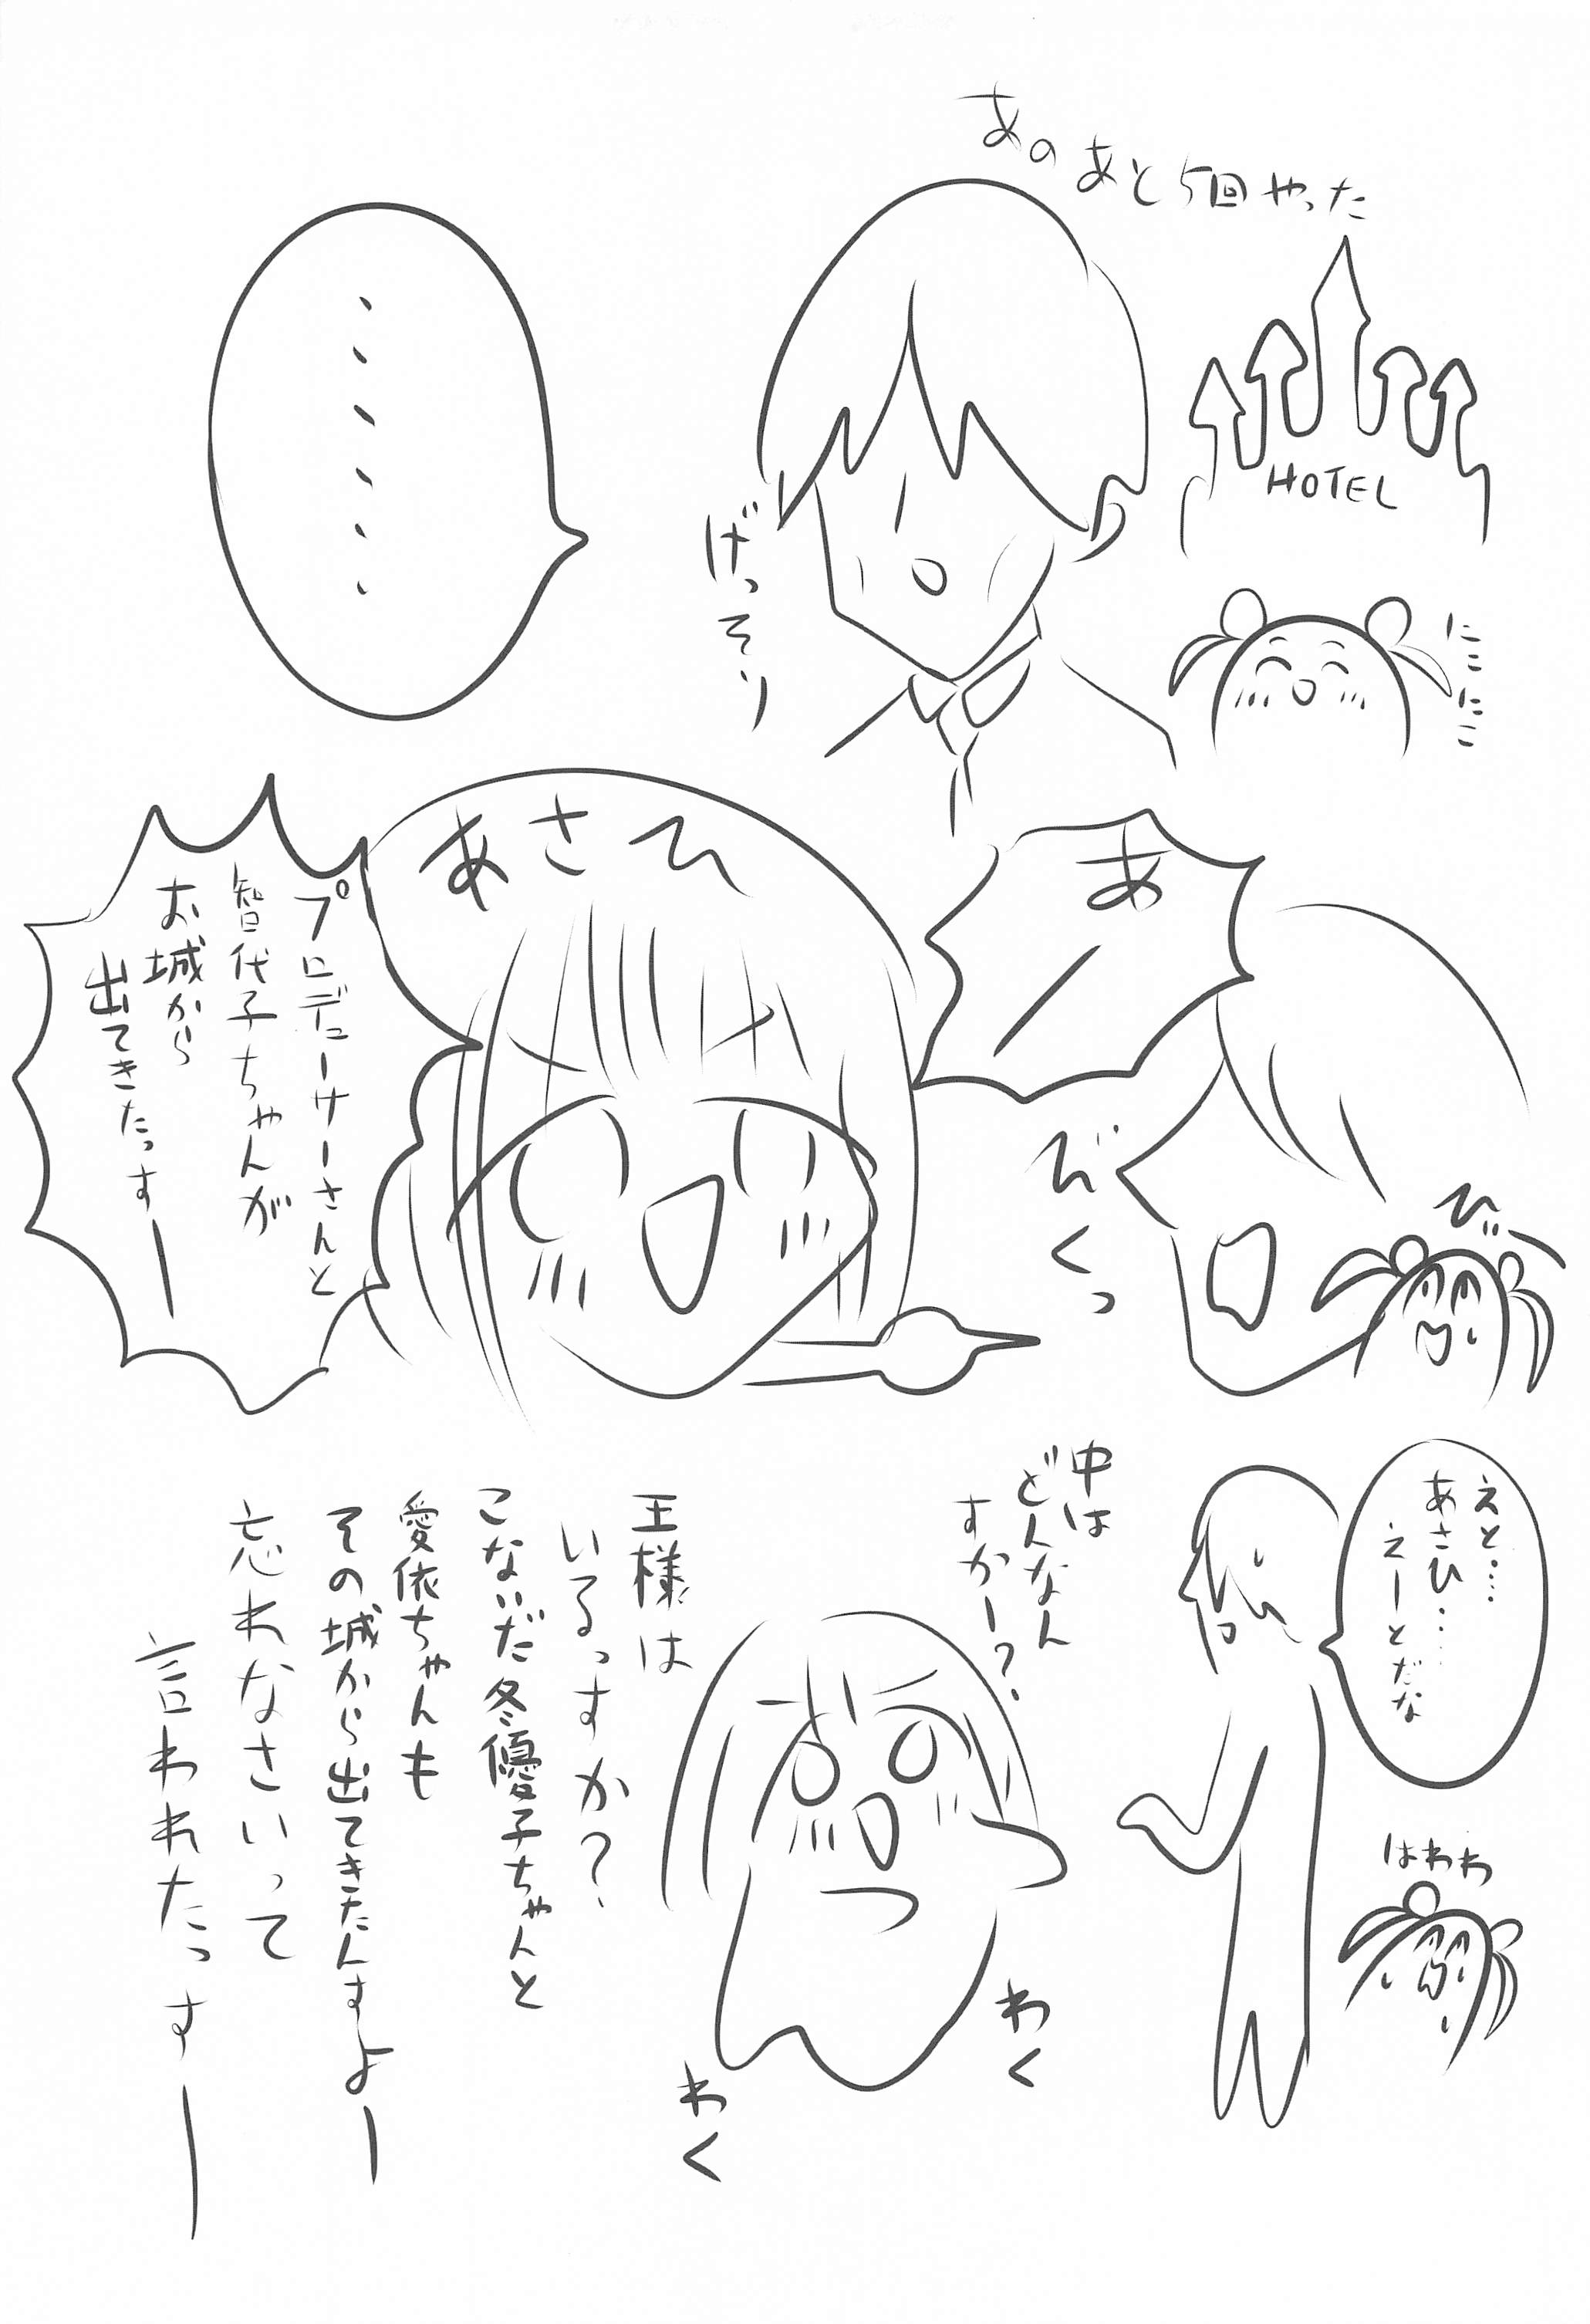 あのあと5回やった
HOTEL
にこにこ
げっそり
・・・・・・
あ/
びくっ
びー
あさひ
プロデューサーさんと
智代子ちゃんが
お城から
出てきたっすー
えと……
あさひ……
えーとだな
はわわ
中は
どんなん
すかー?
わく
わく
王様は
いるっすか?
こないだ冬優子ちゃんと
愛依ちゃんも
その城から出てきたんすよー
忘れなさいって
言われたっすー